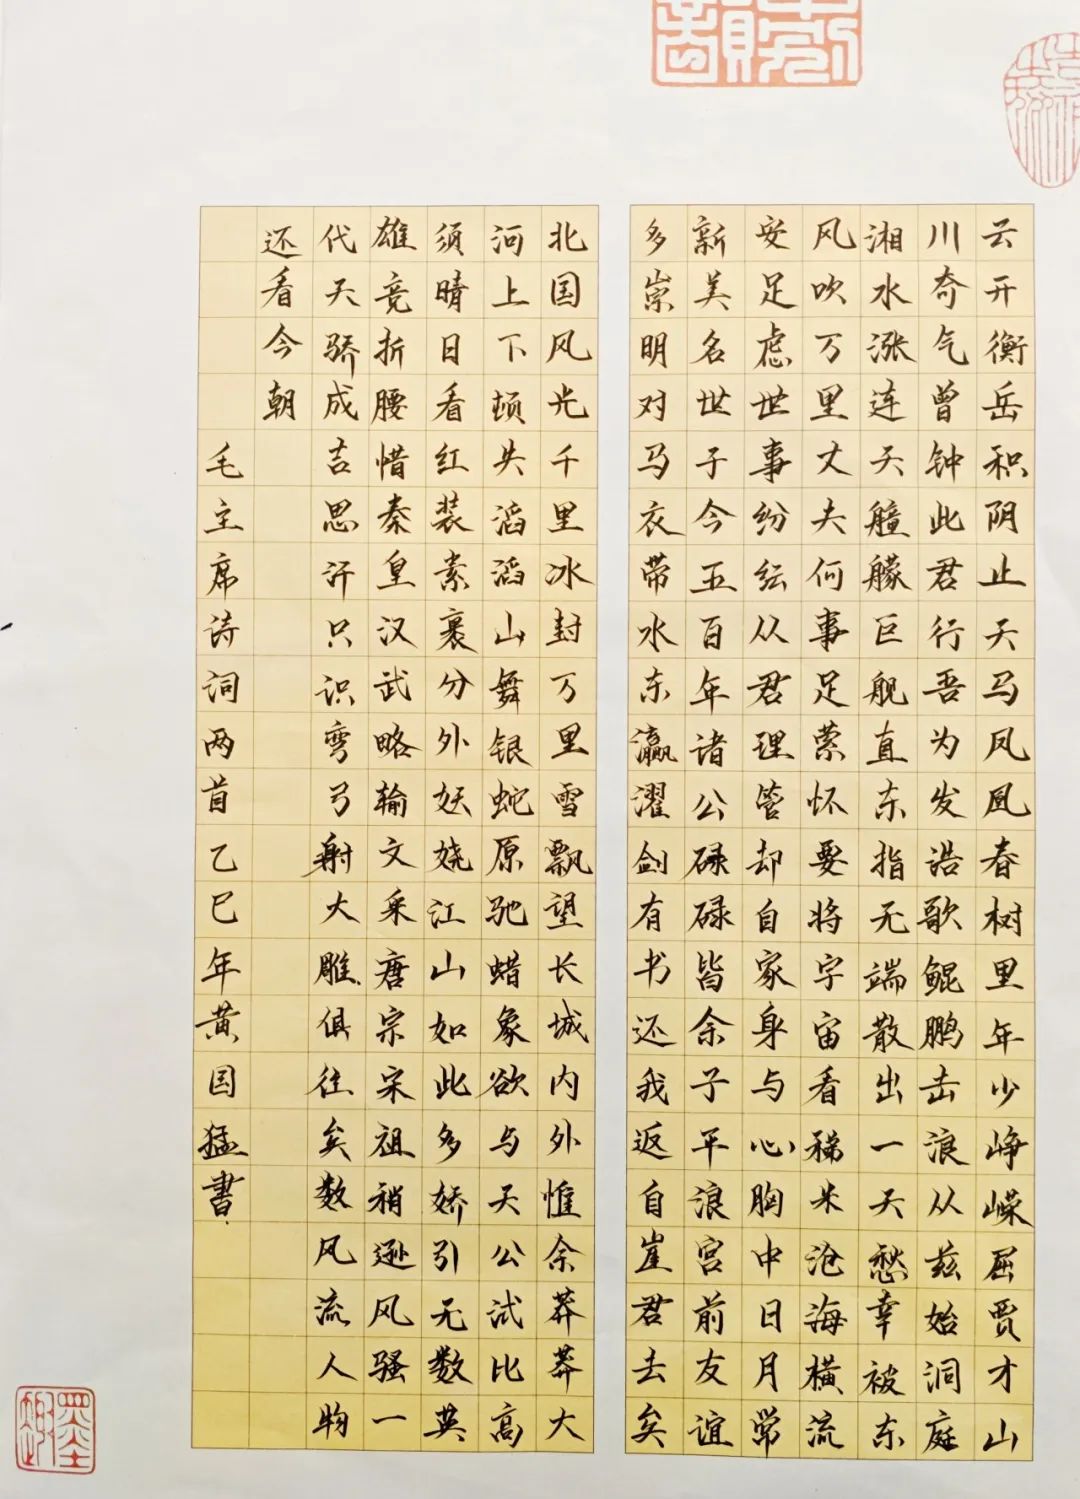 云开衡岳积阴止天马凤凰春树里年少峥嵘屈贾才山
川奇气曾钟此君行吾为发浩歌鲲鹏击浪从兹始洞庭
湘水涨连天艟艨巨舰直东指无端散出一天愁幸被东
风吹万里丈夫何事足萦怀要将宇宙看稊米沧海横流
安足虑世事纷纭从君理管却自家身与心胸中日月常
新美名世于今五百年诸公碌碌皆余子平浪宫前友谊
多崇明对马衣带水东瀛濯剑有书还我返自崖君去矣
北国风光千里冰封万里雪飘望长城内外惟余莽莽大
河上下顿失滔滔山舞银蛇原驰蜡象欲与天公试比高
须晴日看红装素裹分外妖娆江山如此多娇引无数英
雄竞折腰惜秦皇汉武略输文采唐宗宋祖稍逊风骚一
代天骄成吉思汗只识弯弓射大雕俱往矣数风流人物
还看今朝
毛主席诗词两首乙巳年黄国猛書